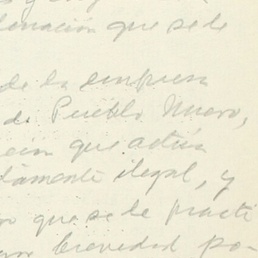 denación que se de
de la empresa
de Pueblo Nuevo,
que actúa
damente ilegal, y
que se le practi
brevedad po-